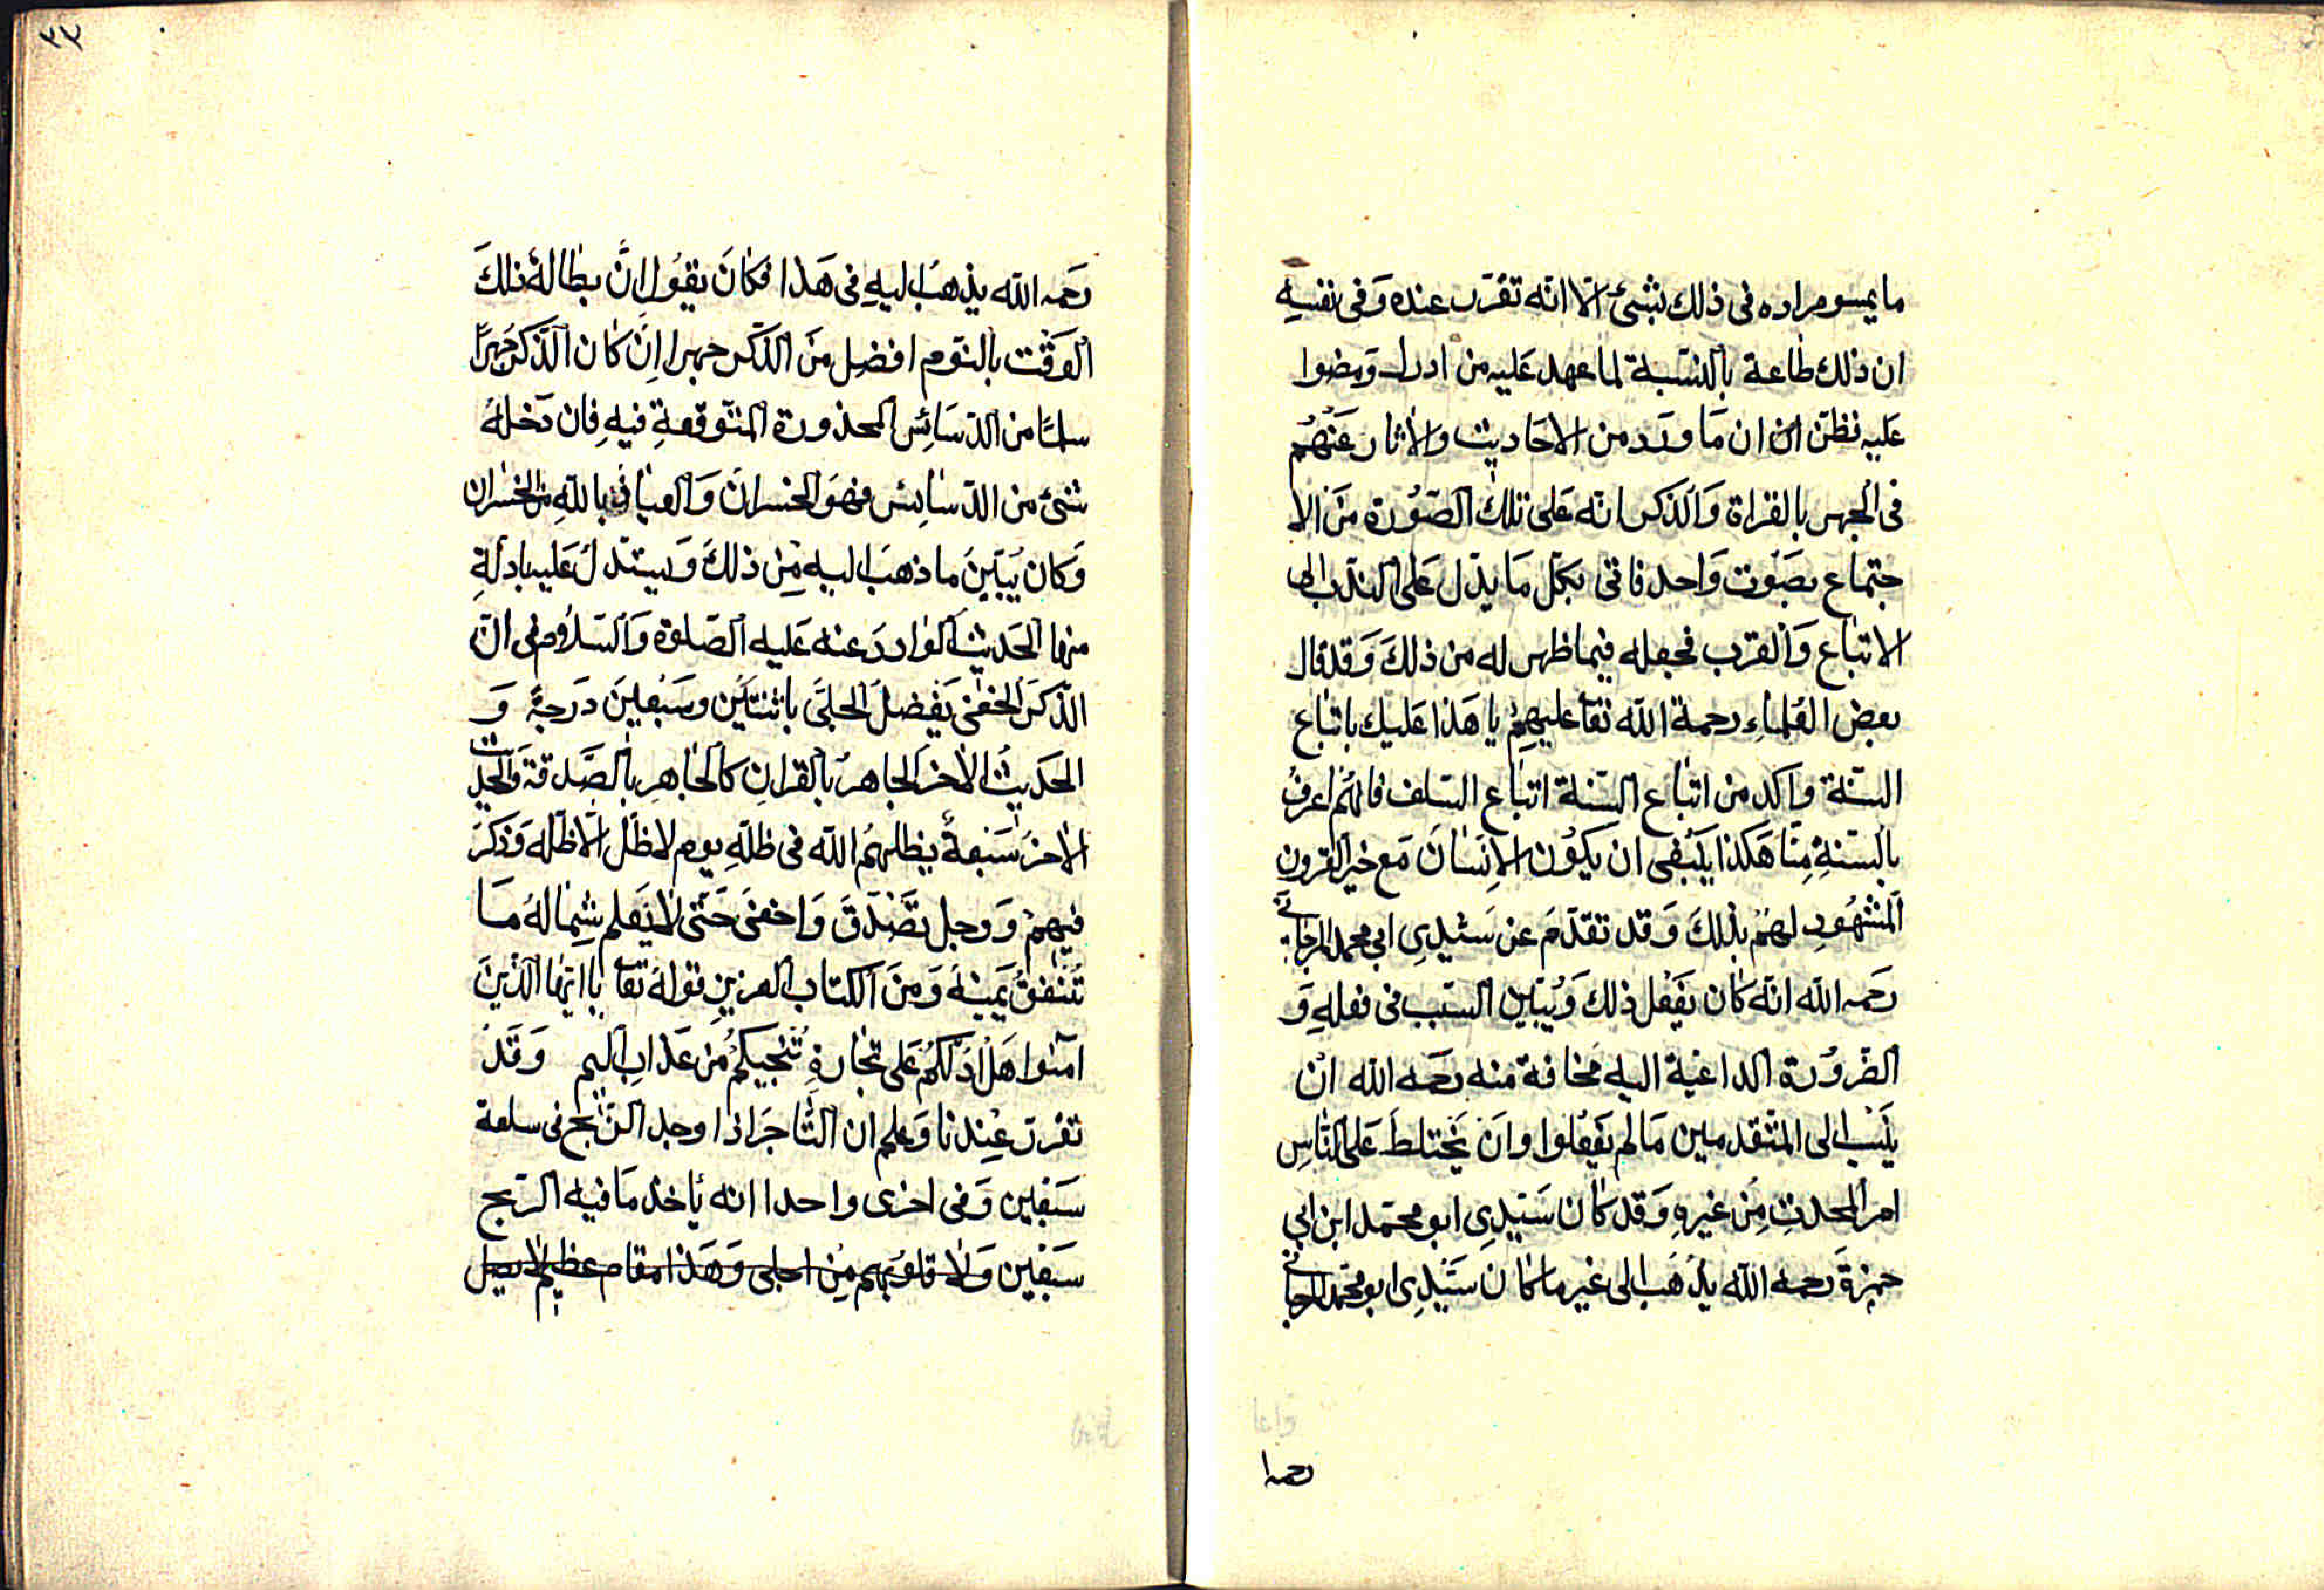 ما يسو مراده فى ذلك بشئ الا انه تقرب عنده وَفى نفسهِ
ان ذلك طاعة بالنسبة لما عهد عَليه من ادرك ومضوا
عَليه نظن ان ان مَا وردَ من الاحاديث والاثار عَنهُم
فى الجهر بالقراة وَالذكر انه عَلى تلك الصُورة منَ الا
جتماع بصَوت وَاحد فاتى بكل مَا يدل عَلى الندب الى
الاتباع وَالقرب فجعله فيما ظهر له من ذلكَ وَقد قال
بعض العُلماءِ رحمة الله تعا عليهِمُ يا هَذا عَليك باتباع
السنة وَاكد من اتباع السنة اتباع السلف فانهُم اعرفُ
بالسنةِ مِنا هَكذا ينبَغى ان يكوُن الاِنسَانَ مَع خير القرون
المشهُودِ لهمُ بذلكَ وَقد تقدمَ عن سَيدِى ابى محمد المرجانى
رحَمه الله انه كان يفَعل ذلك وَيُبين السَبب فى فعلهِ وَ
الضروُرة الداعَية اليه مخافة منه رحمَه الله ان
ينسَب الى المتقدمين مَا لم يفَعلوا وان يَختلطَ عَلى الناسِ
امر المحدثِ مِن غيرهِ وَقد كان سَيدِى ابو محمد ابن ابى
جمزةَ رحمه الله يذهَب الى غير ما كان سَيدِى ابو محمد المرجانى
رحمه ا
٣٤
رحَمه الله يذهبُ اليهِ فى هَذا فكانَ يقوُل اِنَّ بطالةُ ذلكَ
الوَقت بالنوَم افضل منَ الذكر جهرا اِن كان الذكر جَهرًا
سالمًا من الدسَائِس المحذورة المتوَقعةِ فيهِ فان دَخلهُ
شئ من الدسَايس فهوَ الخسران وَالعياذ بالله من الخسران
وَكان يُبيّنَ ما ذهبَ اليه مِن ذلكَ وَيستدلُ عَليه بادلةِ
منها الحَديث الوَاردَ عنه عَليه الصلوة وَالسَلاُم فى ان
الذكرَ الخفى يَفضلُ الجلىَ باثنتين وسَبعينَ درَجةً وَ
الحَديث الاٰخر الجاهرُ بالقرانِ كالجاهرِ بالصَّدقة وَالحديث
الاٰخرُ سَبعةُ يظلهمُ الله فى ظلهِ يوم لا ظل الا ظله وَذكرَ
فيهم وَرجل تصَدَقَ وَاخفى حَتى لا يَعلم شِمالهُ مَا
تُنفقُ يمَينهُ وَمنَ الكتاب العزيزِ قولهُ تعا يا ايها الذينَ
امنوا هَل ادلكُم عَلى تجارةٍ تُنجيكُم مَن عَذابِ اليم وَقدَ
تقرر عِندنا وَعلم ان التاجَر اذا وجد الربح فى سلعة
سَبعين وَفى اخرى واحدا انه يأخذ مَا فيه الربح
سَبعين وَلا قلوُبهم مِن اجلى وَهَذا مقام عظيم لا يصل